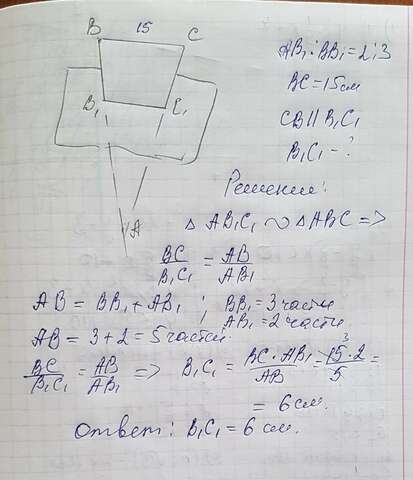 B 15 C
B₁ C₁
A
AB₁ : BB₁ = 2:3
BC = 15 см
CB || B₁C₁
B₁C₁ - ?
Решение:
△ AB₁C₁ ∾ △ABC =>
BC/B₁C₁ = AB/AB₁
AB = BB₁ + AB₁ ; BB₁ = 3 части
AB₁ = 2 части
AB = 3 + 2 = 5 частей
BC/B₁C₁ = AB/AB₁ => B₁C₁ = BC · AB₁/AB = 15³ · 2/5 =
= 6 см.
Ответ: B₁C₁ = 6 см.